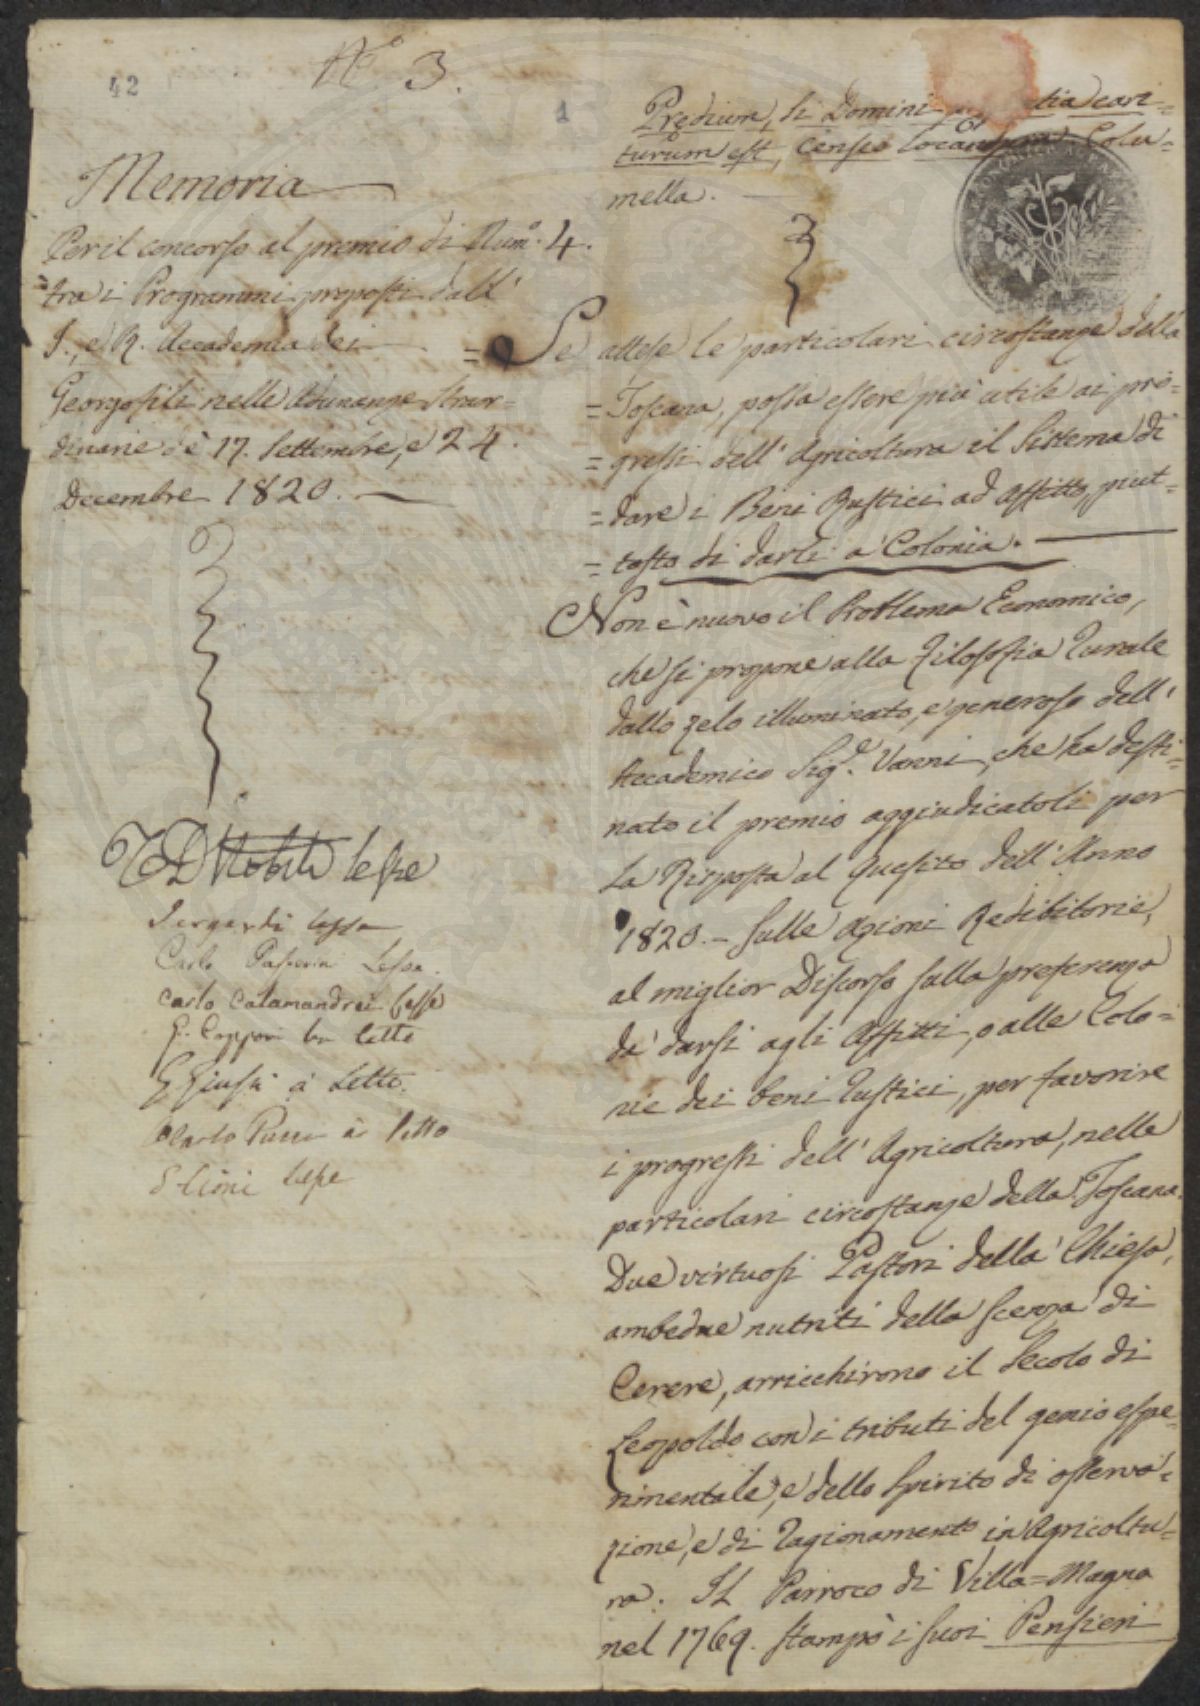 42
N.° 3.
1
Memoria
Per il concorso al premio di Num.° 4.
tra i Programmi proposti dall'
I., e R. Accademia dei
Georgofili nelle Adunanze Straor-
dinarie de' 17. Settembre, e 24.
Decembre 1820.
lesse
Sergardi lesse
Carlo Lesse.
Carlo Calamandrei lesse
G. Capponi ha letto
G Giusti à Letto.
Carlo Pucci à letto
lesse
Prędium, si Domini cari=
turum est, censeo locandum. Colu=
mella.
= Se attese le particolari circostanze della
= Toscana, possa essere più utile ai pro=
= gressi dell'Agricoltura il Sistema di
= dare i Beni Rustici ad Affitto, piut-
= tosto di darli a Colonia.
Non è nuovo il Problema Economico,
che si propone alla Filosofia Rurale
dallo zelo illuminato, e generoso dell'
Accademico Sig.e Vanni, che ha desti=
nato il premio aggiudicatoli per
la Risposta al Quesito dell'Anno
1820. - Sulle Azioni Redibitorie,
al miglior Discorso sulla preferenza
da darsi agli Affitti, o alle Colo=
nie dei beni rustici, per favorire
i progressi dell'Agricoltura, nelle
particolari circostanze della Toscana.
Due virtuosi Pastori della Chiesa,
ambedue nutriti della scenza di
Cerere, arricchirono il Secolo di
Leopoldo con i tributi del genio espe-
rimentale, e dello Spirito di osserva=
zione, e di ragionamento in Agricoltu=
ra. Il Parroco di Villa=Magna
nel 1769. stampò i suoi Pensieri